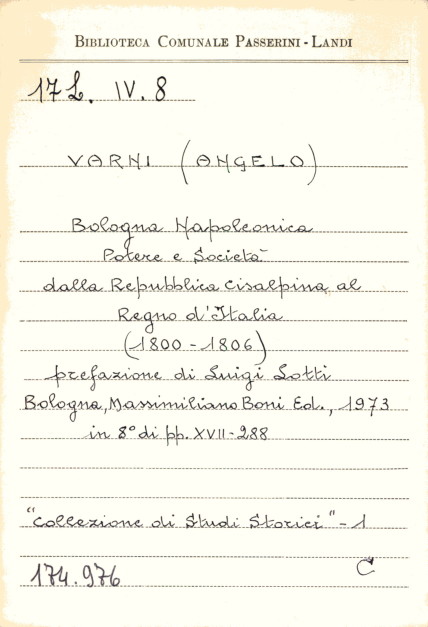 BIBLIOTECA COMUNALE PASSERINI - LANDI
17 L. IV. 8
VARNI (ANGELO)
Bologna Napoleonica
Potere e Società
dalla Repubblica Cisalpina al
Regno d'Italia
(1800 - 1806)
prefazione di Luigi Lotti
Bologna, Massimiliano Boni Ed., 1973
in 8° di pp. XVII-288
"Collezione di Studi Storici" - 1
C
174.976